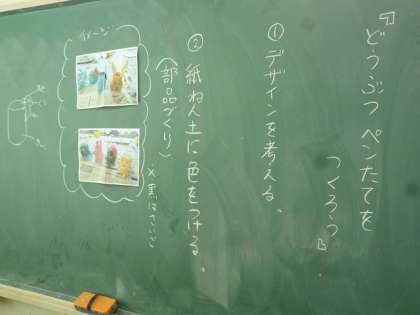 『どうぶつペンたてを
つくろう』.
①デザインを考える。
②紙ねん土に色をつける。
(部品づくり)
×黒はさいご
イメージ